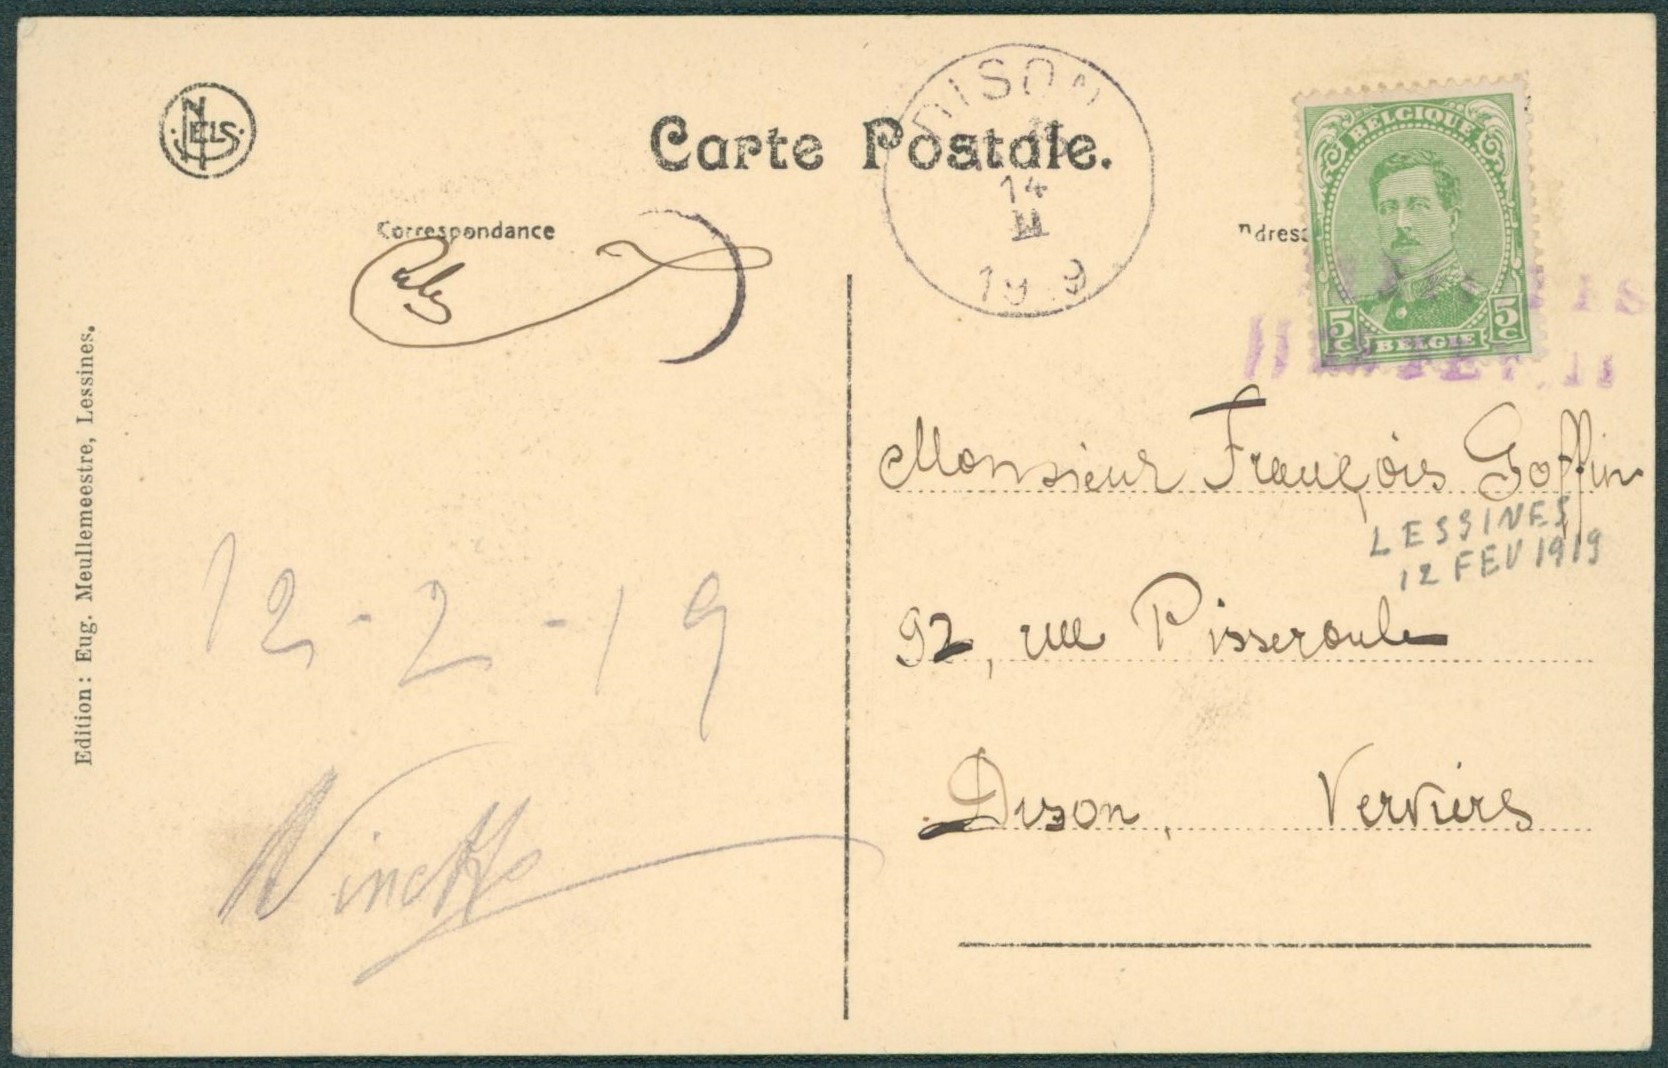 NELS
Carte Postale.
DISON
14
II
19 9
BELGIQUE
5c BELGIE 5c
Correspondance
Monsieur François Goffin
LESSINES
12 FEV 1919
92, rue Pisseroule
Dison, Verviers
12-2-19
Ninette
Edition: Eug. Meullemeestre, Lessines.